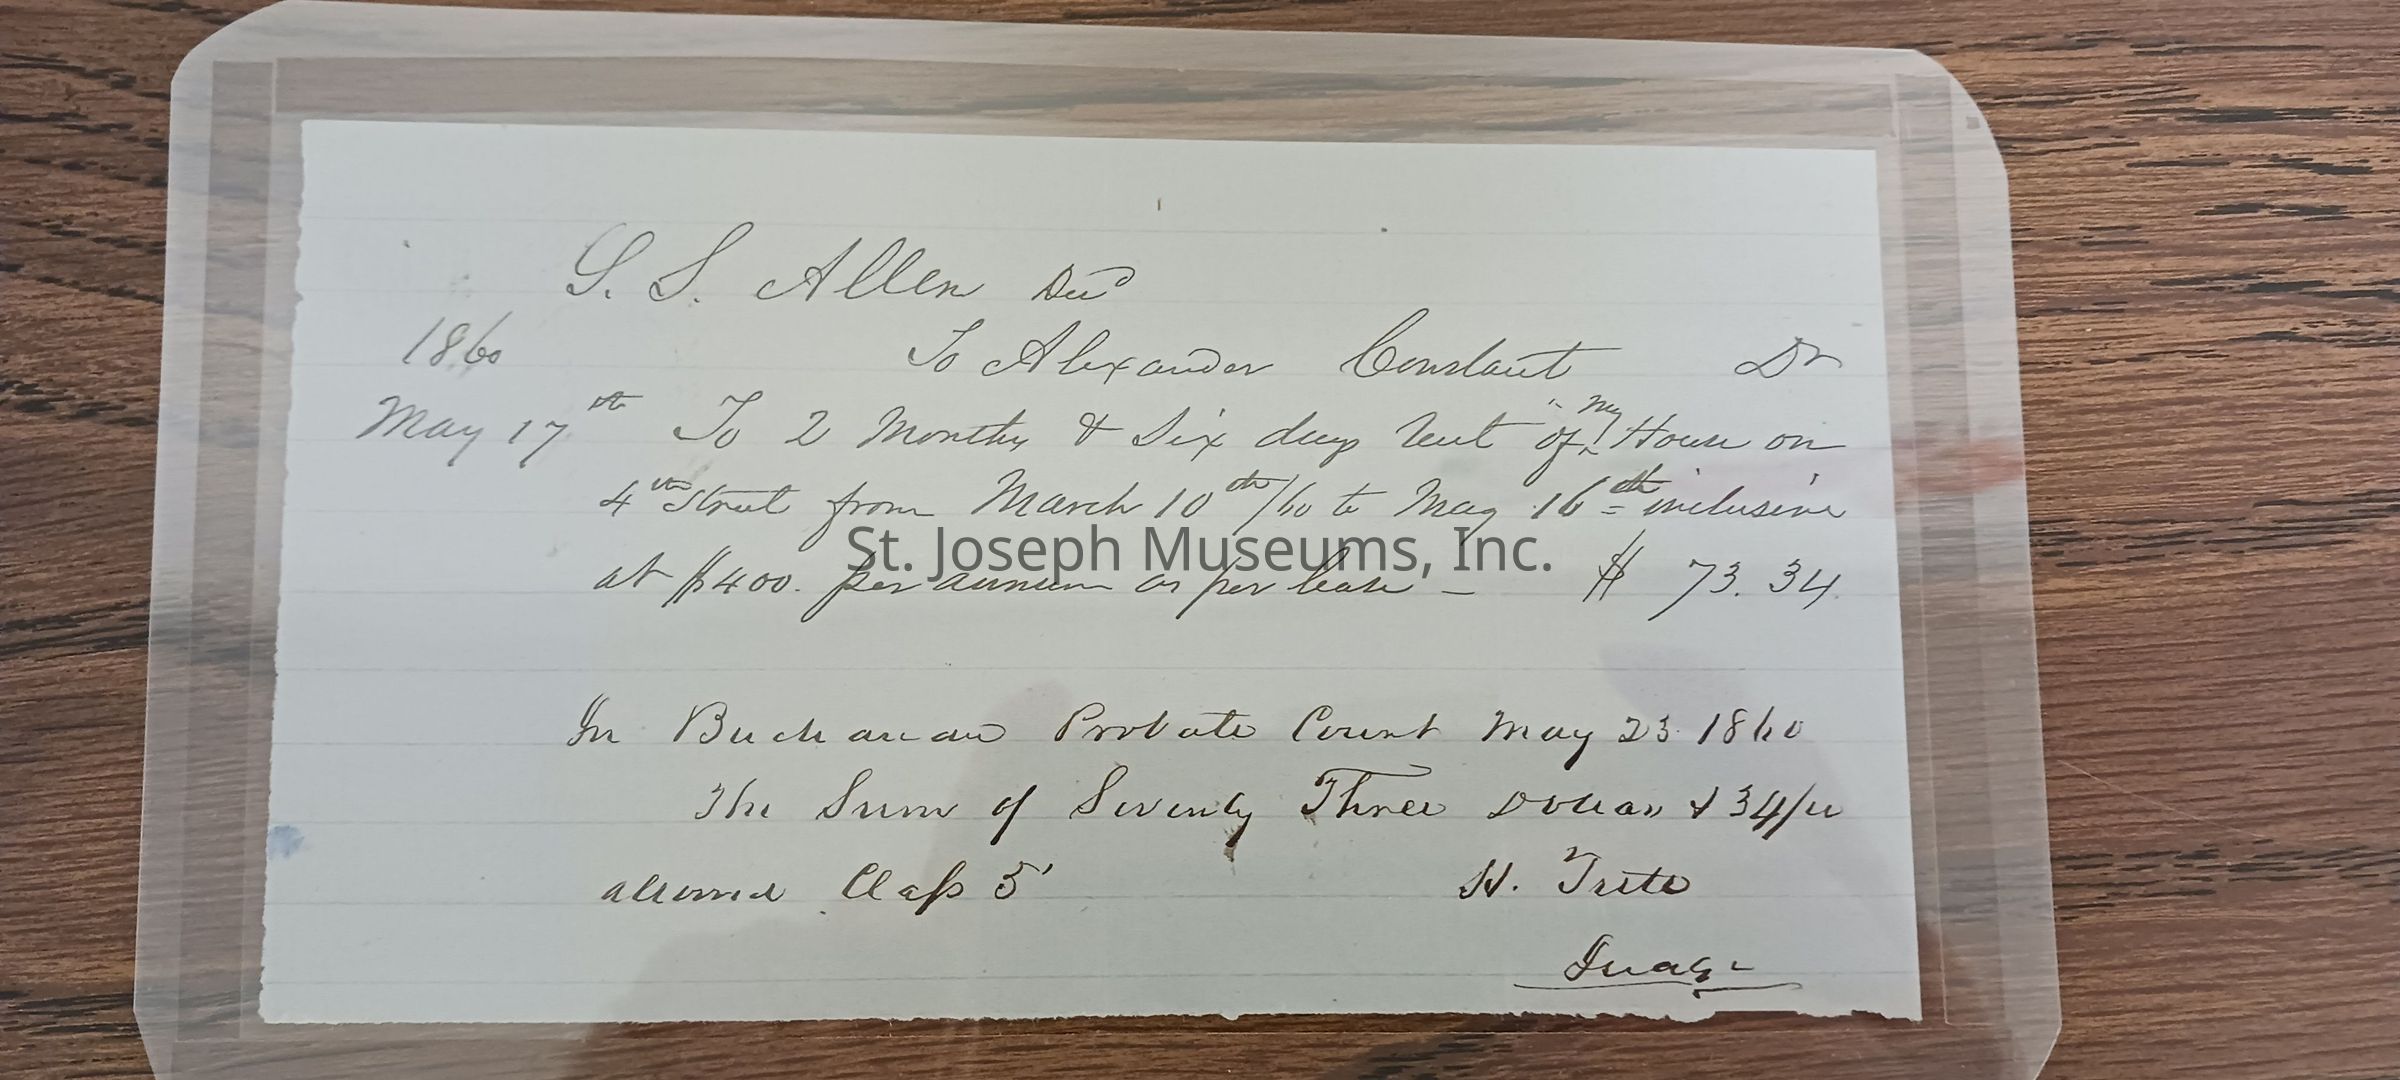 S. S. Allen Decd
1860 To Alexander Constant Dr
May 17th To 2 Months & Six days Rent of my House on
4th Street from March 10th/60 to May 16th inclusive
at $400. per annum as per lease — $ 73.34
St. Joseph Museums, Inc.
In Buchanan Probate Court May 23 1860
The Sum of Seventy Three Dollars & 34/c
allowed Class 5
Judge